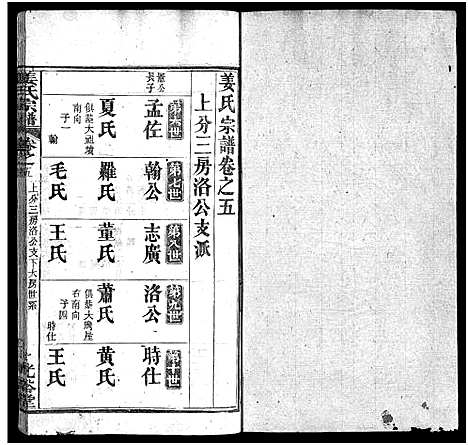 姜氏宗譜卷之五
上分三房洛公支派
第六世
第七世
第八世
第九世
第十世
長子
孟佐
翰公
志廣
洛公
時仕
夏氏
羅氏
董氏
蕭氏
黃氏
俱葬大祖墳
南向
子一
翰
毛氏
王氏
俱葬大
右南向
子四
時仕
王氏
姜氏宗譜
卷之五
上分三房洛公支下大房世系